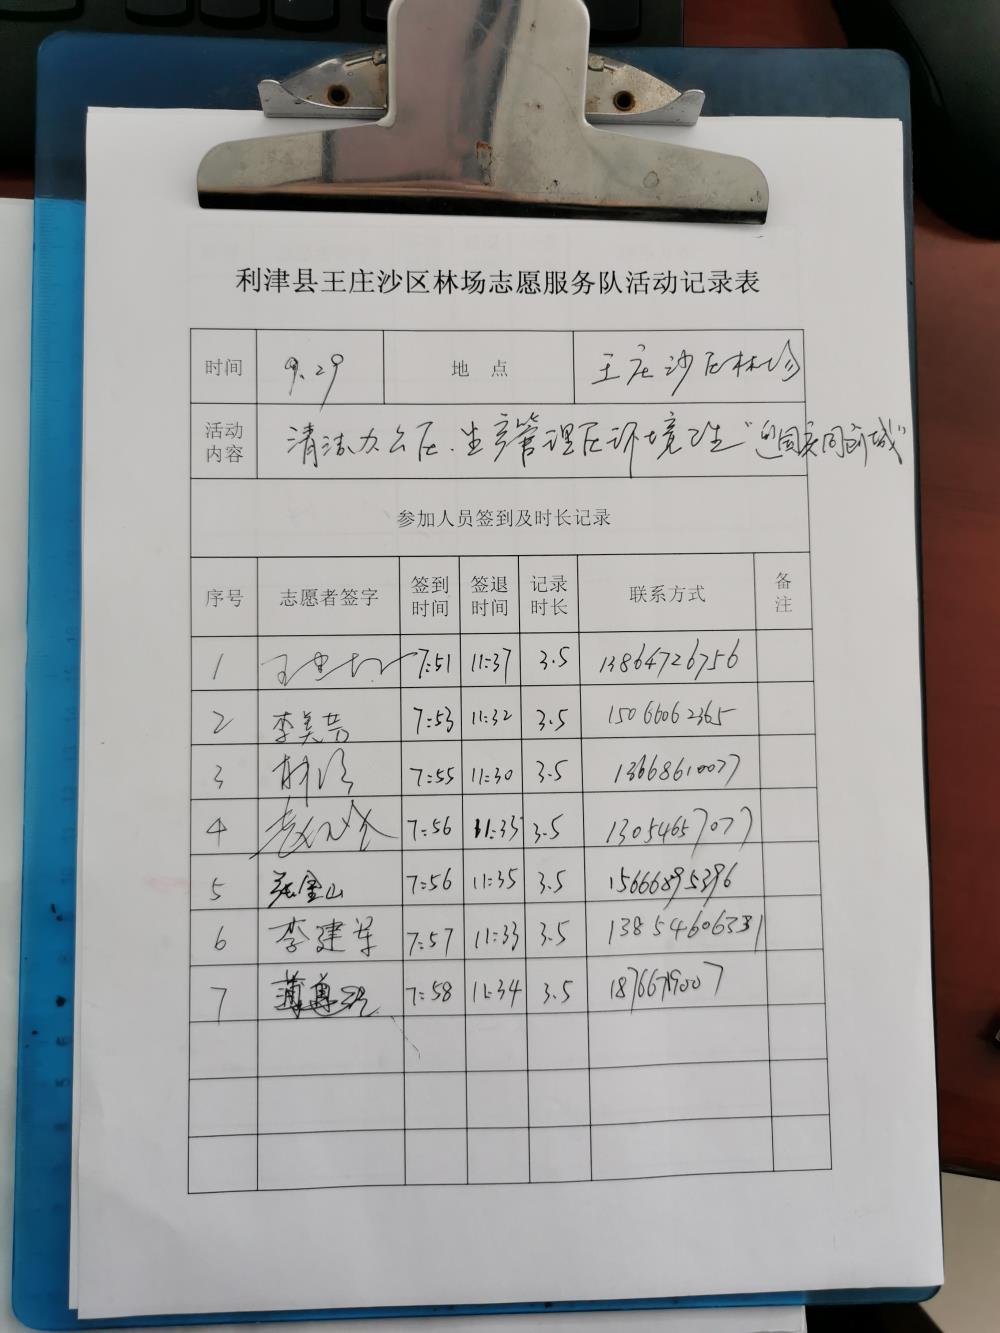 利津县王庄沙区林场志愿服务队活动记录表
时间 9.29 地 点 王庄沙区林场
活动内容 清洁办公区、生产管理区环境卫生“迎国庆 同创城”
参加人员签到及时长记录
序号 志愿者签字 签到时间 签退时间 记录时长 联系方式 备注
1 7:51 11:37 3.5 13864726756
2 李美芳 7:53 11:32 3.5 15066062365
3 林涛 7:55 11:30 3.5 13668610077
4 7:56 11:33 3.5 13054657077
5 张金山 7:56 11:35 3.5 15666895396
6 李建军 7:57 11:33 3.5 13854606331
7 7:58 11:34 3.5 18766719007